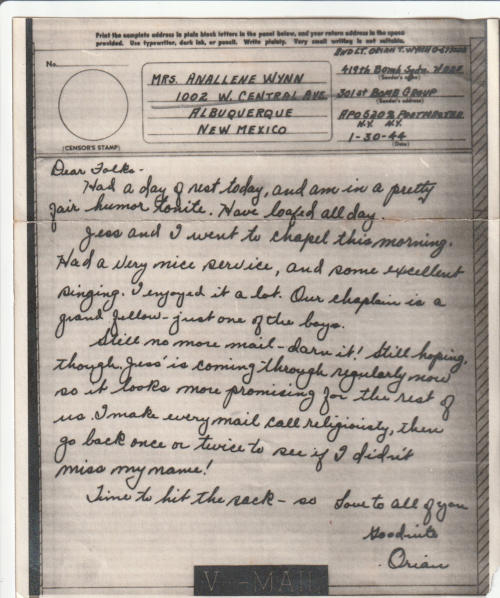 Print the complete address in plain block letters in the panel below, and your return address in the space
provided. Use typewriter, dark ink, or pencil. Write plainly. Very small writing is not suitable.
No.
(CENSOR'S STAMP)
MRS. ANALLENE WYNN
1002 W. CENTRAL AVE
ALBUQUERQUE
NEW MEXICO
2ND LT. ORIAN T. WYNN
419th Bomb Sqdn.
(Sender's name)
301st BOMB GROUP
(Sender's address)
APO 520 % POSTMASTER
N.Y. N.Y.
1-30-44
(Date)
Dear Folks -
Had a day of rest today, and am in a pretty
fair humor tonite. Have loafed all day.
Jess and I went to chapel this morning.
Had a very nice service, and some excellent
singing. I enjoyed it a lot. Our chaplain is a
grand fellow - just one of the boys.
Still no more mail - darn it! Still hoping,
though. Jess' is coming through regularly now
so it looks more promising for the rest of
us. I make every mail call religiously, then
go back once or twice to see if I didn't
miss my name!
Time to hit the sack - so Love to all of you
Goodnite
Orian
V - MAIL